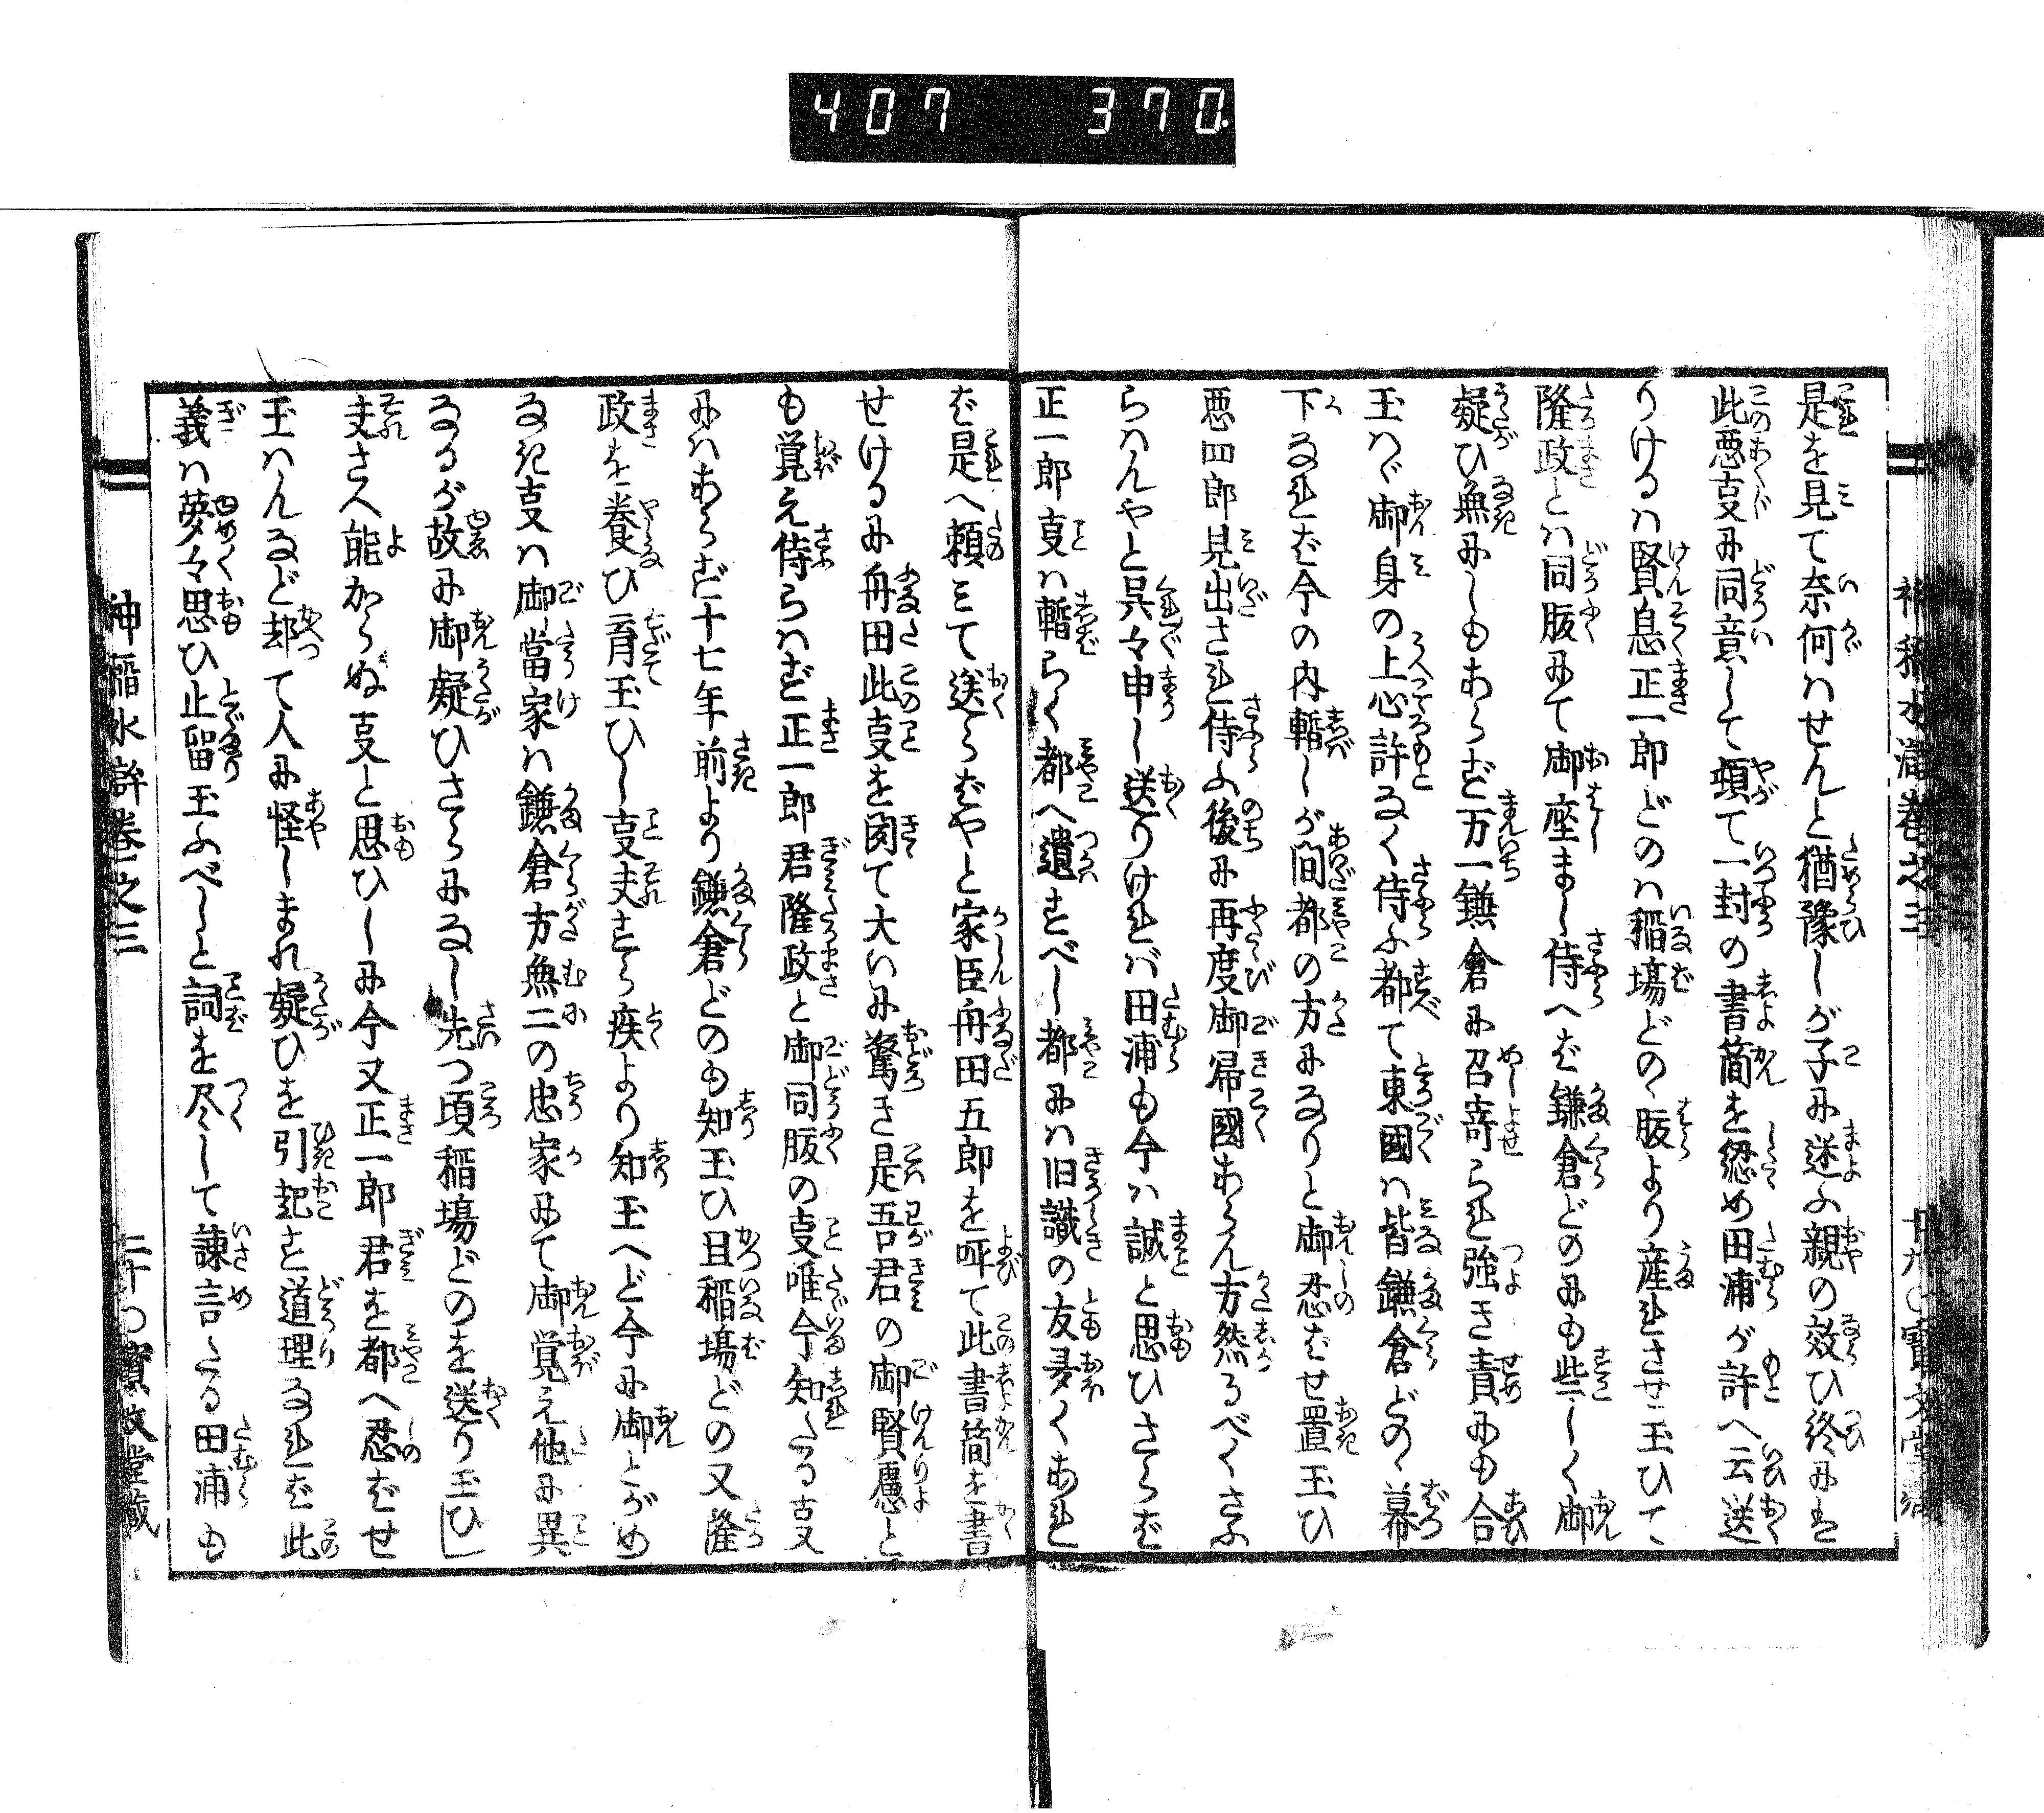 407 370
是を見て奈何ハせんと猶豫しが子に迷ふ親の效ひ終には
此悪叓に同意して頓て一封の書簡を認め田浦が許へ云送
りけるハ賢息正一郎どのハ稲塲どのゝ腹より産れさせ玉ひて
隆政とハ同腹にて御座まし侍へば鎌倉どのにも些しく御
疑ひ無にしもあらず万一鎌倉に召寄られ強き責にも合
玉ハゞ御身の上心許なく侍ふ都て東國ハ皆鎌倉どのゝ幕
下なれば今の内暫しが间都の方になりと御忍ばせ置玉ひ
悪四郎見出され侍ふ後に再度御帰國あらん方然るべくさふ
らハんやと呉々申し送りけれバ田浦も今ハ誠と思ひさらば
正一郎叓ハ暫らく都へ遣すべし都にハ旧識の友多くあれ
ば是へ頼ミて送らばやと家臣舟田五郎を呼て此書簡を書
せけるに舟田此叓を闻て大いに驚き是吾君の御賢慮と
も覚え侍らハず正一郎君隆政と御同腹の叓唯今知たる叓
にハあらず十七年前より鎌倉どのも知玉ひ且稲塲どの又隆
政を養ひ育玉ひし叓夫すら疾より知玉へど今に御とがめ
なき叓ハ御當家ハ鎌倉方無二の忠家にて御覚え他に異
なるが故に御疑ひさらになし先つ頃稲塲どのを送り玉ひ」
夫さへ能からぬ叓と思ひしに今又正一郎君を都へ忍ばせ
玉ハんなど却て人に怪しまれ疑ひを引起す道理なれば此
義ハ夢々思ひ止留玉ふべしと詞を尽して諌言たる田浦も
神稲水滸巻之三 二十〇寳文堂蔵